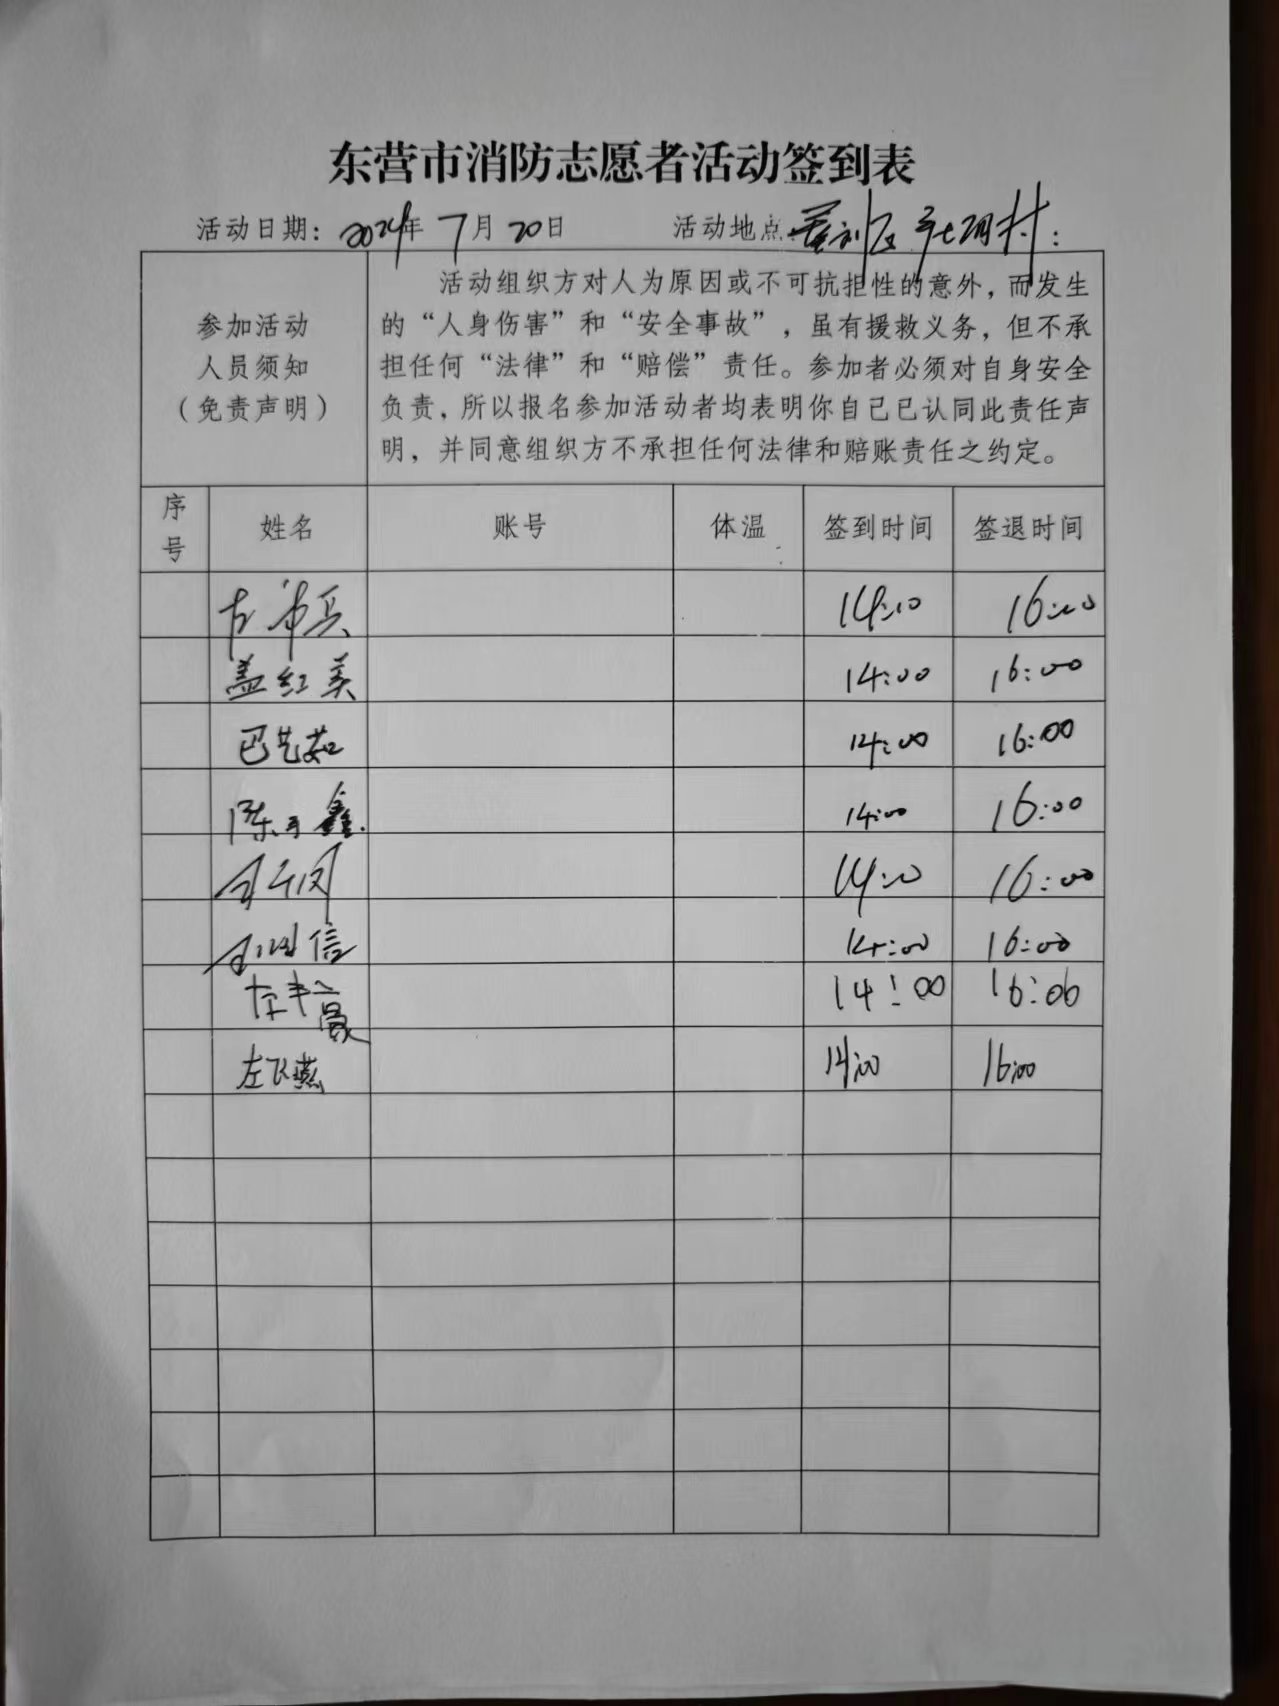 东营市消防志愿者活动签到表
活动日期：2024年 7月 20日 活动地点 垦利区 村：
参加活动
人员须知
（免责声明）
活动组织方对人为原因或不可抗拒性的意外，而发生
的“人身伤害”和“安全事故”，虽有援救义务，但不承
担任何“法律”和“赔偿”责任。参加者必须对自身安全
负责，所以报名参加活动者均表明你自己已认同此责任声
明，并同意组织方不承担任何法律和赔账责任之约定。
序号 姓名 账号 体温 签到时间 签退时间
14:00 16:00
盖红美 14:00 16:00
巴艺茹 14:00 16:00
陈子鑫 14:00 16:00
14:00 16:00
信 14:00 16:00
豪 14:00 16:00
左飞燕 14:00 16:00